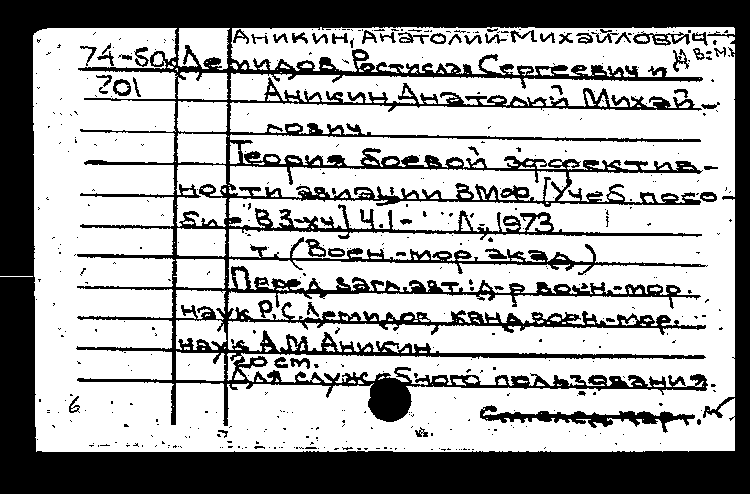 Аникин, Анатолий Михайлович.
74-50 Демидов, Ростислав Сергеевич и
201 Аникин, Анатолий Михай-
лович.
Теория боевой эффектив-
ности авиации ВМФ. [Учеб. посо-
бие. В 3-х ч.] Ч.1- Л., 1973.
т. (Воен.-мор. акад.)
Перед загл. авт.: д-р воен.-мор.
наук Р.С. Демидов, канд. воен.-мор.
наук А.М. Аникин.
20 см.
Для служебного пользования.
См. след. карт.
6